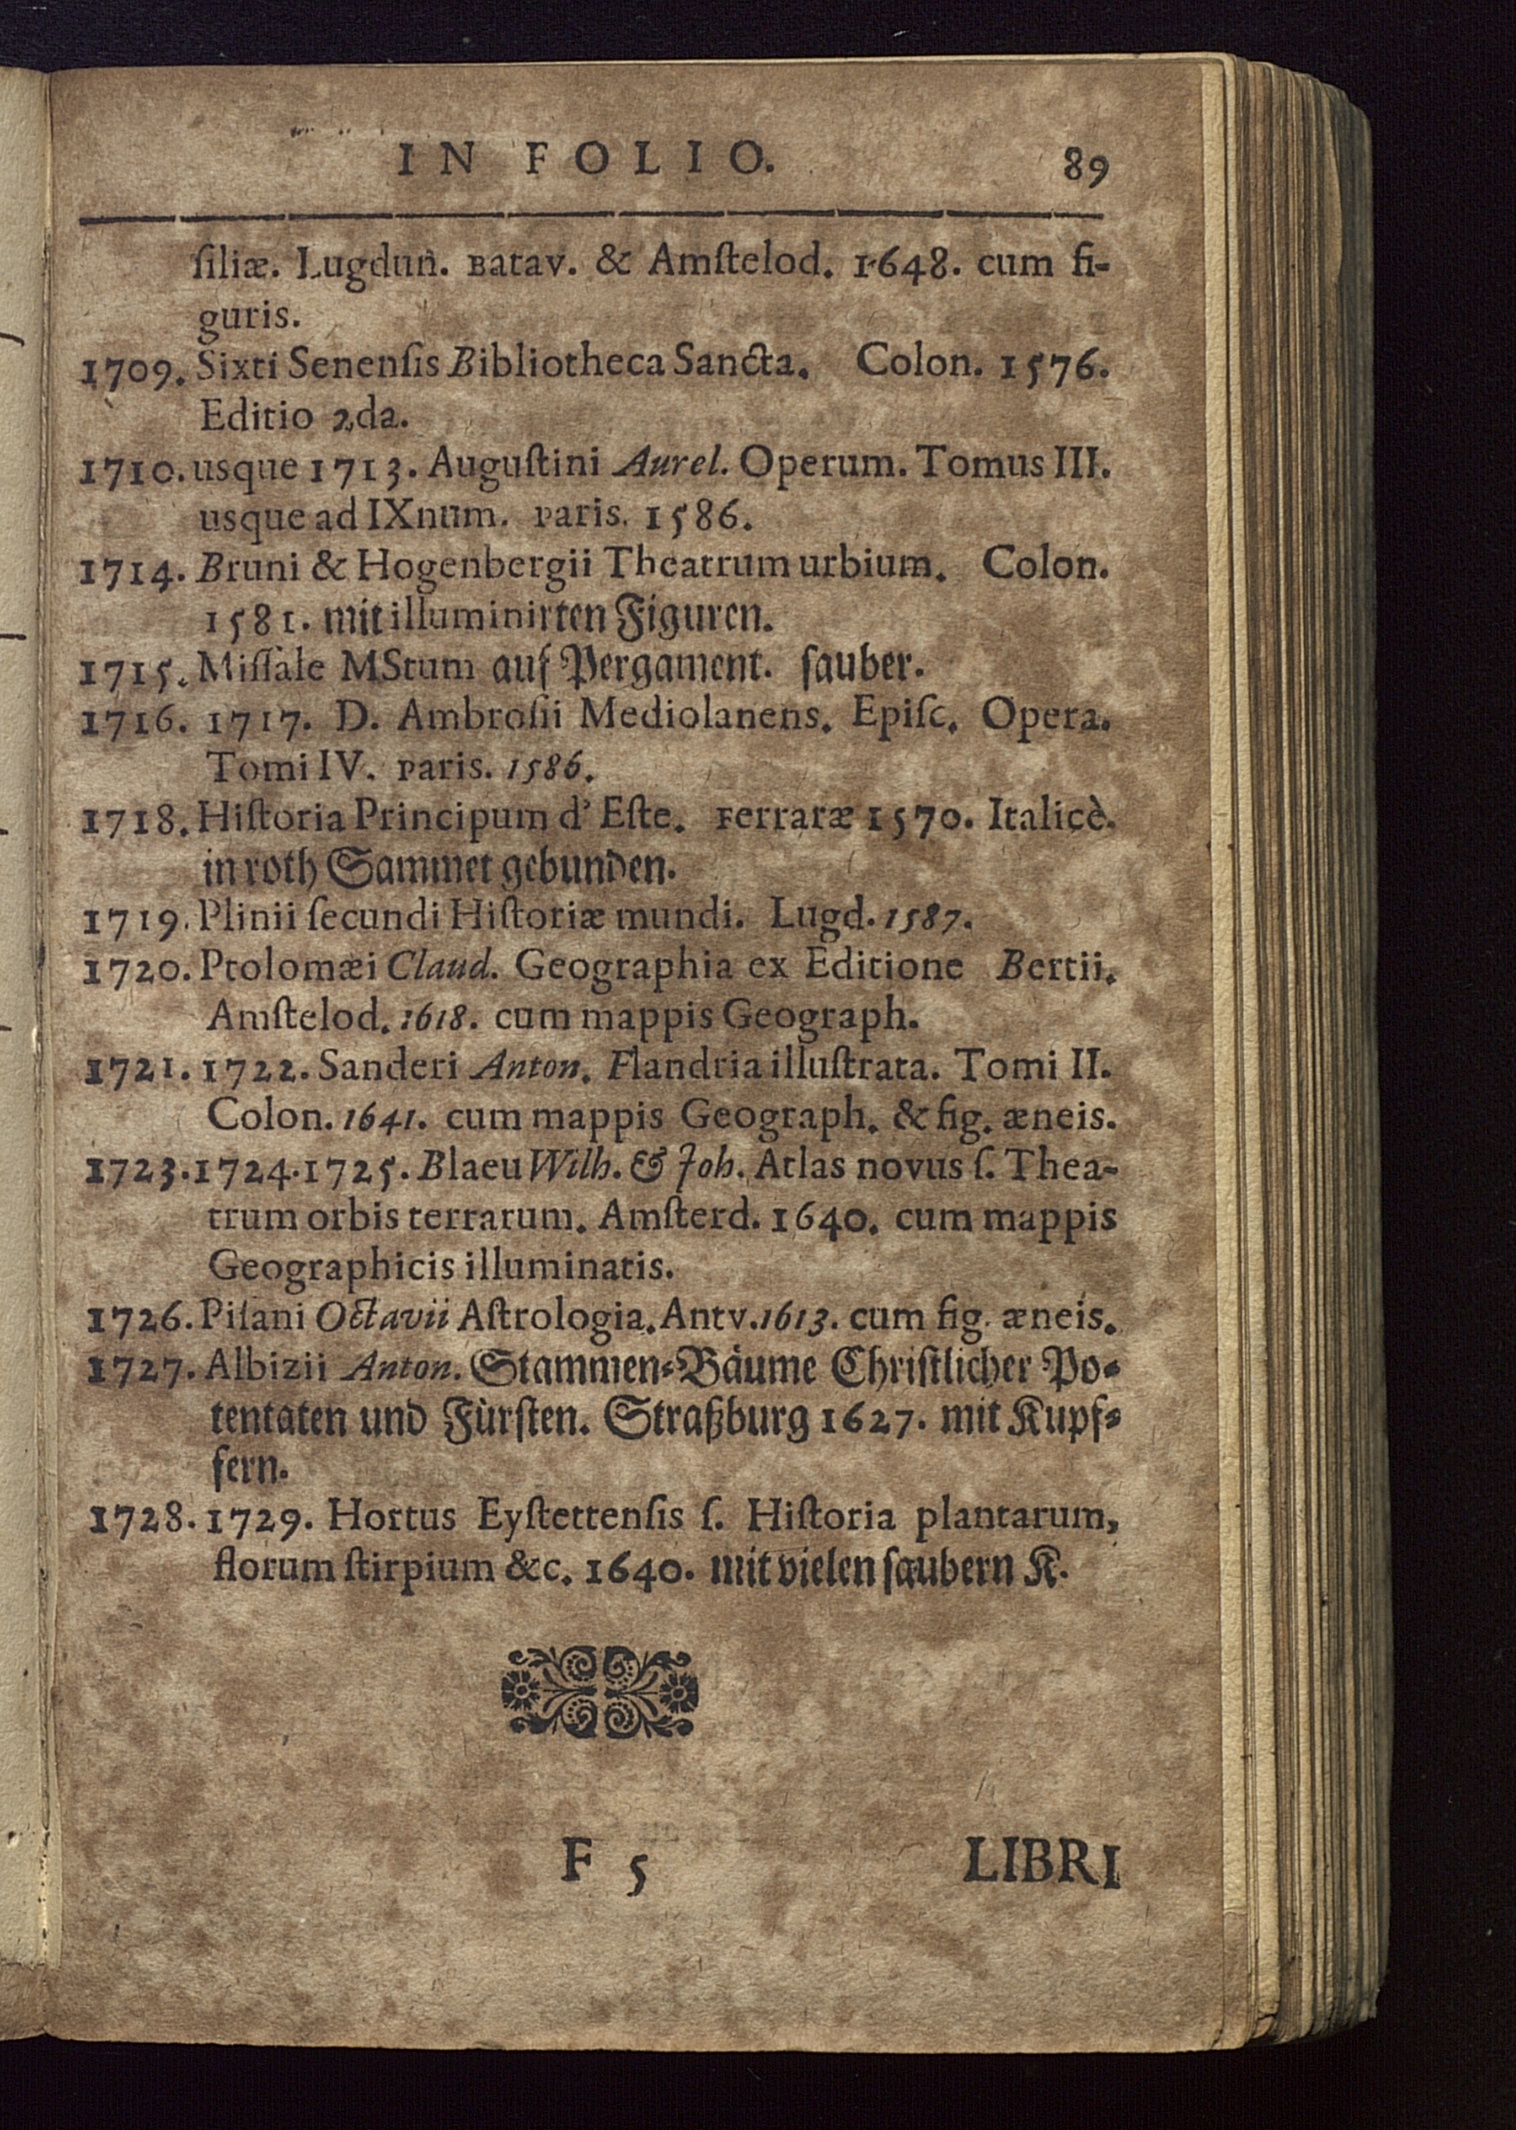 IN FOLIO. 89
ſiliæ. Lugdun. Batav. & Amſtelod. 1648. cum fi-
guris.
1709. Sixti Senenſis Bibliotheca Sancta. Colon. 1576.
Editio 2da.
1710. usque 1713. Auguſtini Aurel. Operum. Tomus III.
usque ad IXnum. Paris. 1586.
1714. Bruni & Hogenbergii Theatrum urbium. Colon.
1581. mit illuminirten Figuren.
1715. Miſſale MStum auf Pergament. ſauber.
1716. 1717. D. Ambroſii Mediolanens. Epiſc. Opera.
Tomi IV. Paris. 1586.
1718. Hiſtoria Principum d' Eſte. Ferraræ 1570. Italicè.
in roth Sammet gebunden.
1719. Plinii ſecundi Hiſtoriæ mundi. Lugd. 1587.
1720. Ptolomæi Claud. Geographia ex Editione Bertii.
Amſtelod. 1618. cum mappis Geograph.
1721. 1722. Sanderi Anton. Flandria illuſtrata. Tomi II.
Colon. 1641. cum mappis Geograph. & fig. æneis.
1723. 1724. 1725. Blaeu Wilh. & Joh. Atlas novus ſ. Thea-
trum orbis terrarum. Amſterd. 1640. cum mappis
Geographicis illuminatis.
1726. Piſani Octavii Aſtrologia. Antv. 1613. cum fig. æneis.
1727. Albizii Anton. Stammen-Bäume Chriſtlicher Po-
tentaten und Fürſten. Straßburg 1627. mit Kupf-
fern.
1728. 1729. Hortus Eyſtettenſis ſ. Hiſtoria plantarum,
florum ſtirpium &c. 1640. mit vielen ſaubern K.
F 5 LIBRI